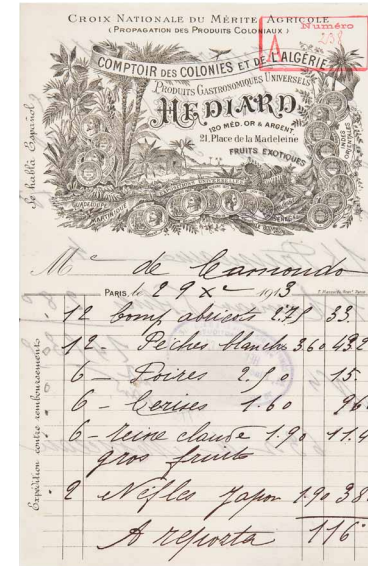 CROIX NATIONALE DU MÉRITE AGRICOLE
( PROPAGATION DES PRODUITS COLONIAUX )
Numéro
COMPTOIR DES COLONIES ET DE L'ALGÉRIE
PRODUITS GASTRONOMIQUES UNIVERSELS
HEDIARD
120 MÉD. OR & ARGENT
21, Place de la Madeleine
FRUITS EXOTIQUES
Se habla Español
GUADELOUPE
MARTINIQUE
EXPOSITIONS UNIVERSELLES
de Camondo
PARIS, le 29 Xe 1913
12 comp abricots 2.75 33.
12 - Pêches blanche 3.60 43.2
6 - Poires 2.50 15.
6 - Cerises 1.60 9.6
6 - reine claude 1.90 11.4
gros fruits
2 Nèfles Japon 1.90 3.8
A reporter 116
Expédition contre remboursements